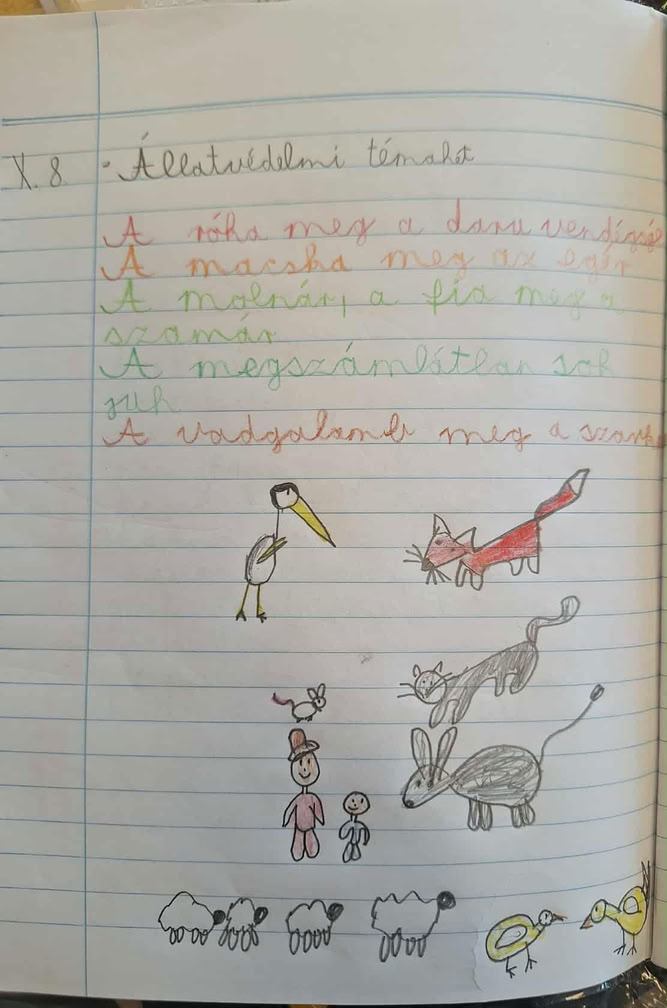 X. 8. Állatvédelmi témahét
A róka meg a daru vendégsé
A macska meg az egér
A molnár, a fia meg a
szamár
A megszámlátlan sok
juh
A vadgalamb meg a szarka